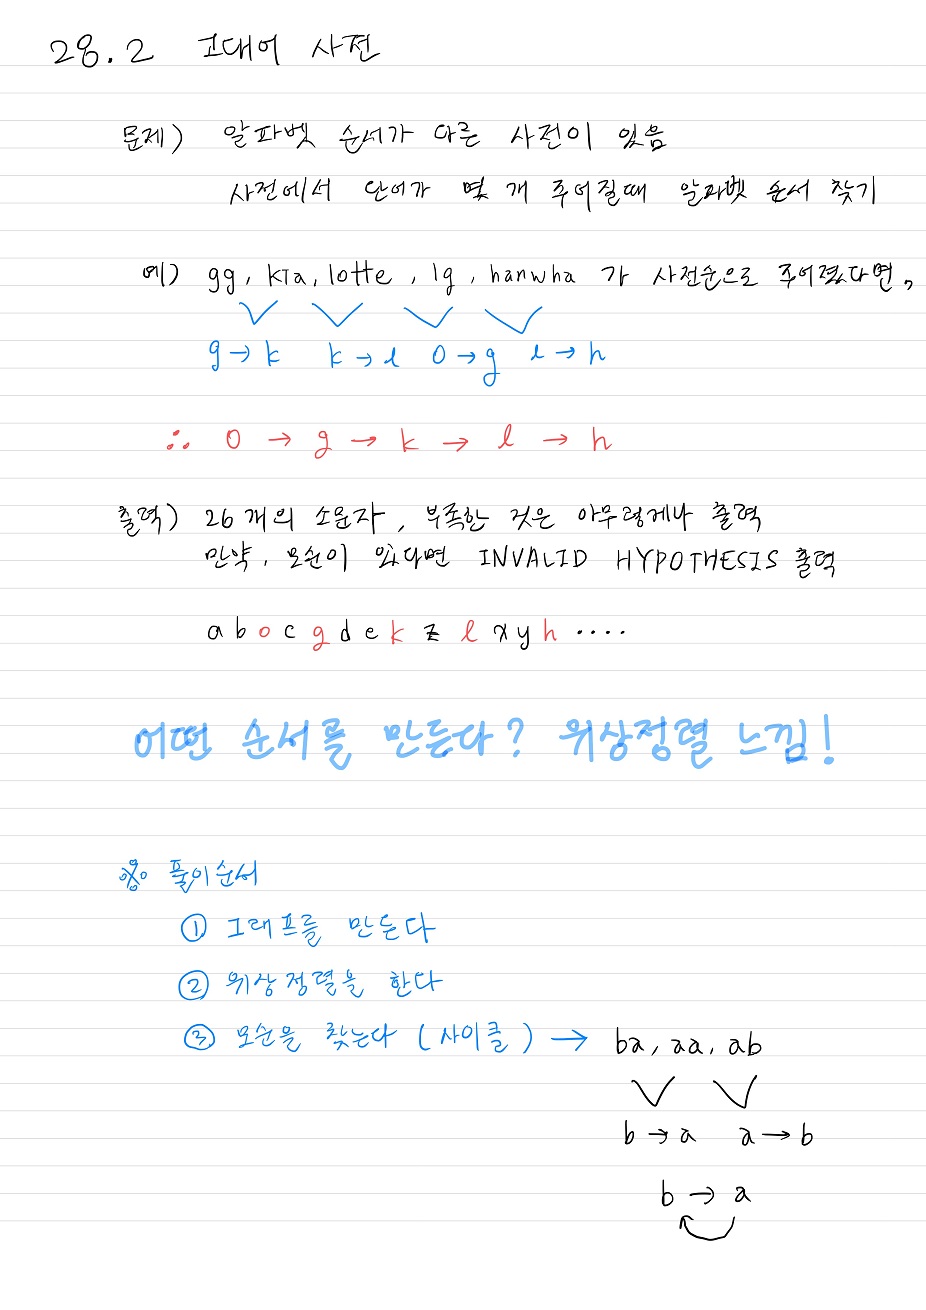 28.2 고대어 사전
문제) 알파벳 순서가 다른 사전이 있음
사전에서 단어가 몇 개 주어질때 알파벳 순서 찾기
예) gg, kia, lotte, lg, hanwha 가 사전순으로 주어졌다면,
g → k k → l o → g l → h
∴ o → g → k → l → h
출력) 26개의 소문자, 부족한 것은 아무렇게나 출력
만약, 모순이 있다면 INVALID HYPOTHESIS 출력
a b o c g d e k z l x y h ....
어떤 순서를 만든다? 위상정렬 느낌!
※ 풀이순서
① 그래프를 만든다
② 위상정렬을 한다
③ 모순을 찾는다 (사이클) → ba, aa, ab
b → a a → b
b → a